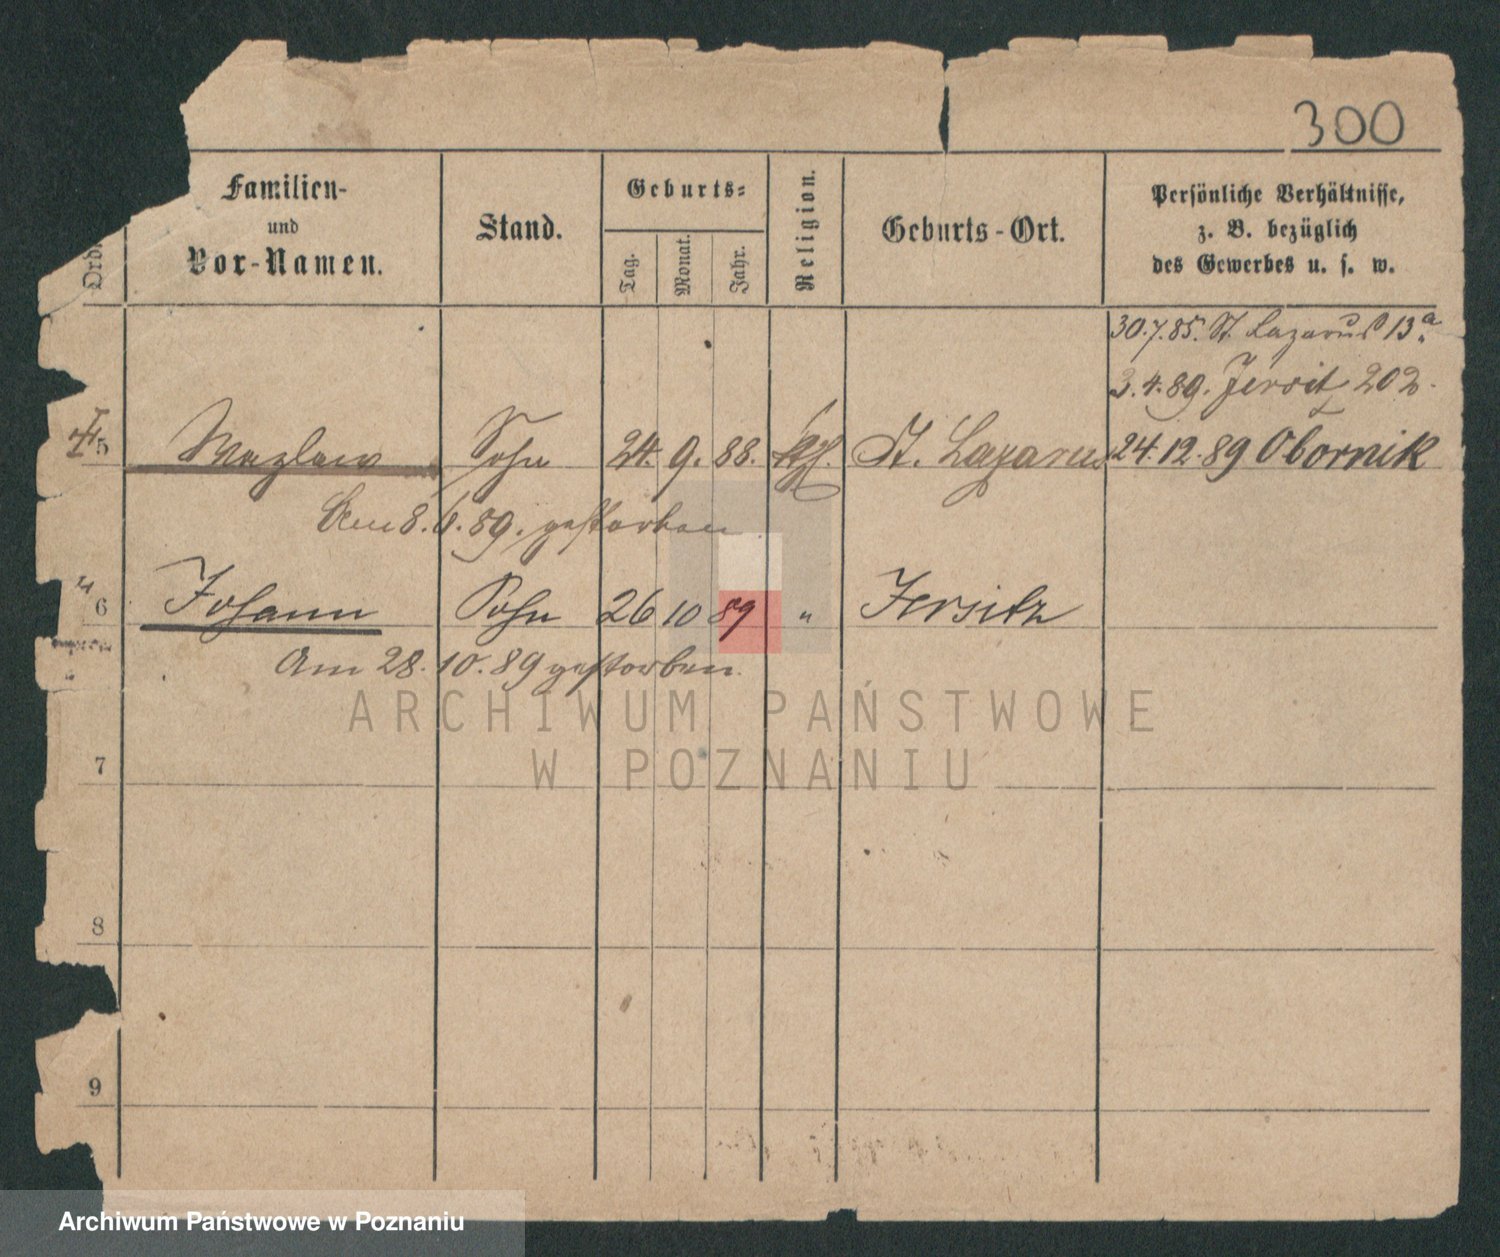 300
Ord.
Familien-
und
Vor-Namen.
Stand.
Geburts-
Tag.
Monat.
Jahr.
Religion.
Geburts-Ort.
Persönliche Verhältnisse,
z. B. bezüglich
des Gewerbes u. s. w.
30.7.85. St. Lazarus 13a
3.4.89. Jersitz 202.
5 Wazlaw Sohn 24. 9. 88. kth. St. Lazarus 24.12.89 Obornik
Am 8.6.89. gestorben
6 Johann Sohn 26 10 89 " Jersitz
Am 28.10.89 gestorben.
7
8
9
ARCHIWUM PAŃSTWOWE
W POZNANIU
Archiwum Państwowe w Poznaniu